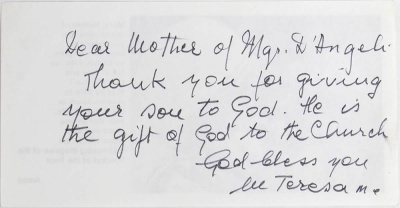 Dear Mother of Mgr. D'Angeli.
Thank you for giving
your son to God. He is
the gift of God to the Church
God bless you
M Teresa m.c